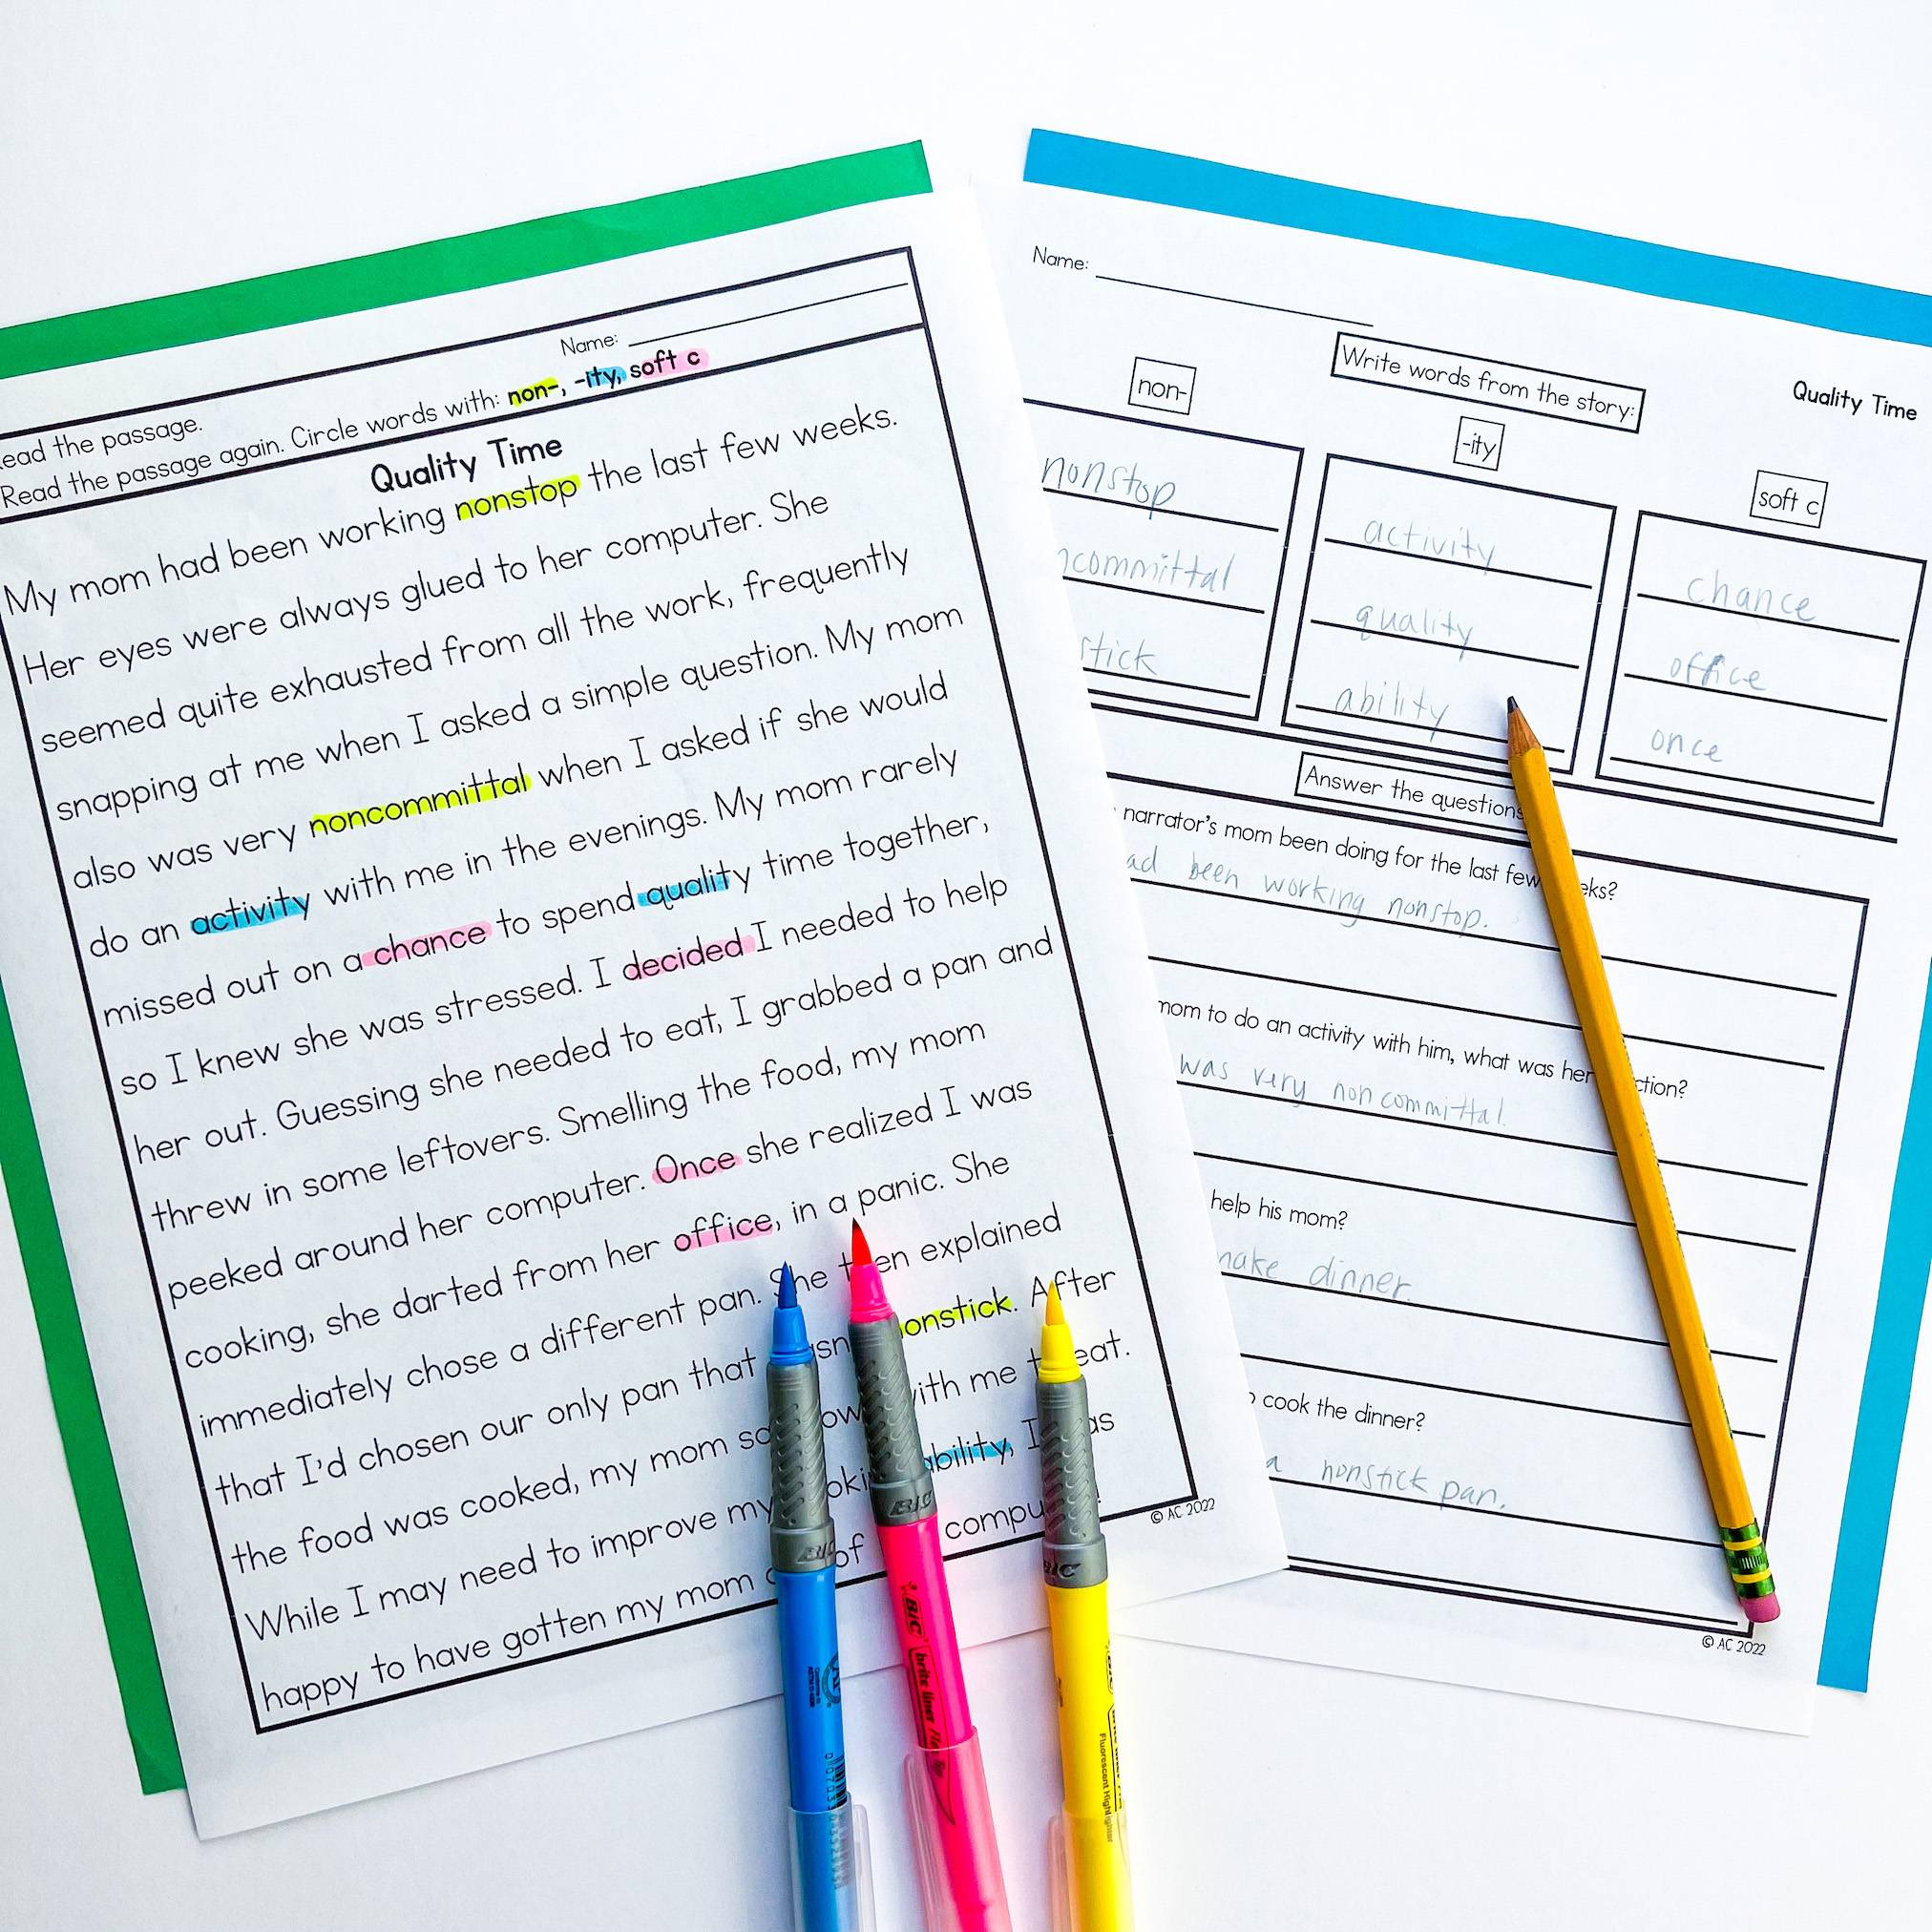 Name:
ead the passage.
Read the passage again. Circle words with: non-, -ity, soft c
Quality Time
My mom had been working nonstop the last few weeks.
Her eyes were always glued to her computer. She
seemed quite exhausted from all the work, frequently
snapping at me when I asked a simple question. My mom
also was very noncommittal when I asked if she would
do an activity with me in the evenings. My mom rarely
missed out on a chance to spend quality time together,
so I knew she was stressed. I decided I needed to help
her out. Guessing she needed to eat, I grabbed a pan and
threw in some leftovers. Smelling the food, my mom
peeked around her computer. Once she realized I was
cooking, she darted from her office, in a panic. She
immediately chose a different pan. She then explained
that I'd chosen our only pan that onstick. After
the food was cooked, my mom with me eat.
While I may need to improve my ability, I
happy to have gotten my mom of
© AC 2022
Name:
Quality Time
Write words from the story:
non-
nonstop
ncommittal
stick
-ity
activity
quality
ability
soft c
chance
office
once
Answer the questions
narrator's mom been doing for the last few eks?
ad been working nonstop.
mom to do an activity with him, what was her ction?
was very noncommittal.
help his mom?
make dinner.
cook the dinner?
a nonstick pan.
© AC 2022
BIC
BIC
BIC
BIC brite liner
Fluorescent Highlighter